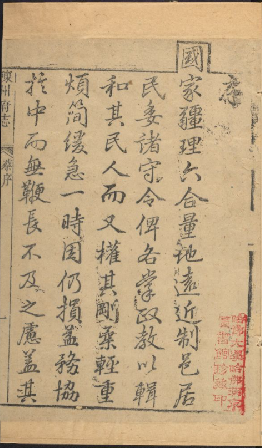 序
國
家疆理六合量地遠近制邑居
民委諸守令俾各掌政教以輯
和其民人而又權其剛柔輕重
煩簡緩急一時因仍損益務協
於中而無鞭長不及之慮蓋其
州府志
序